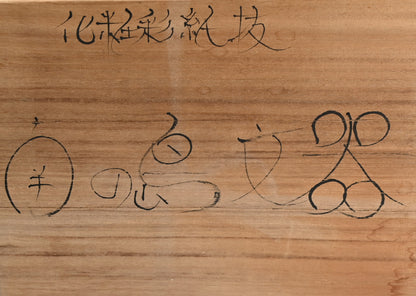 化粧彩紙技
南の鳥文器